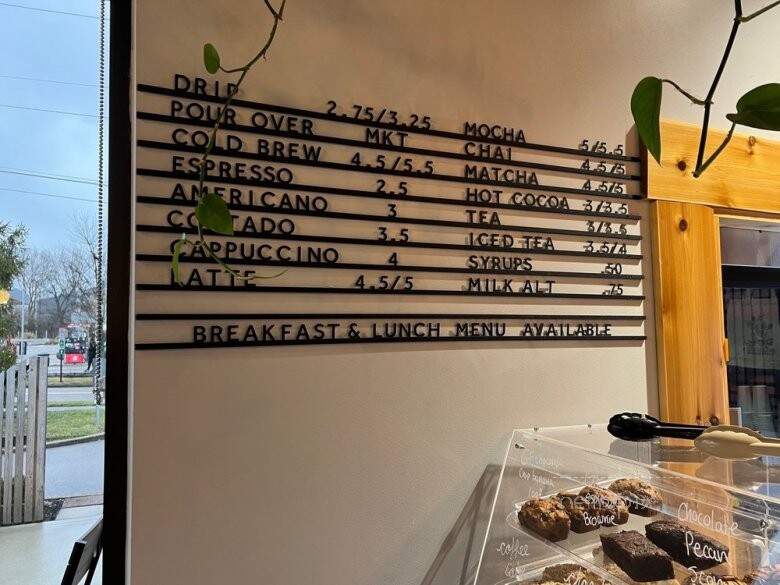 DRIP 2.75/3.25
POUR OVER MKT
COLD BREW 4.5/5.5
ESPRESSO 2.5
AMERICANO 3
CORTADO 3.5
CAPPUCCINO 4
LATTE 4.5/5
MOCHA 5/5.5
CHAI 4.5/5
MATCHA 4.5/5
HOT COCOA 3/3.5
TEA 3/3.5
ICED TEA 3.5/4
SYRUPS .50
MILK ALT .75
BREAKFAST & LUNCH MENU AVAILABLE
banana
Brownie
coffee
Chocolate
Pecan